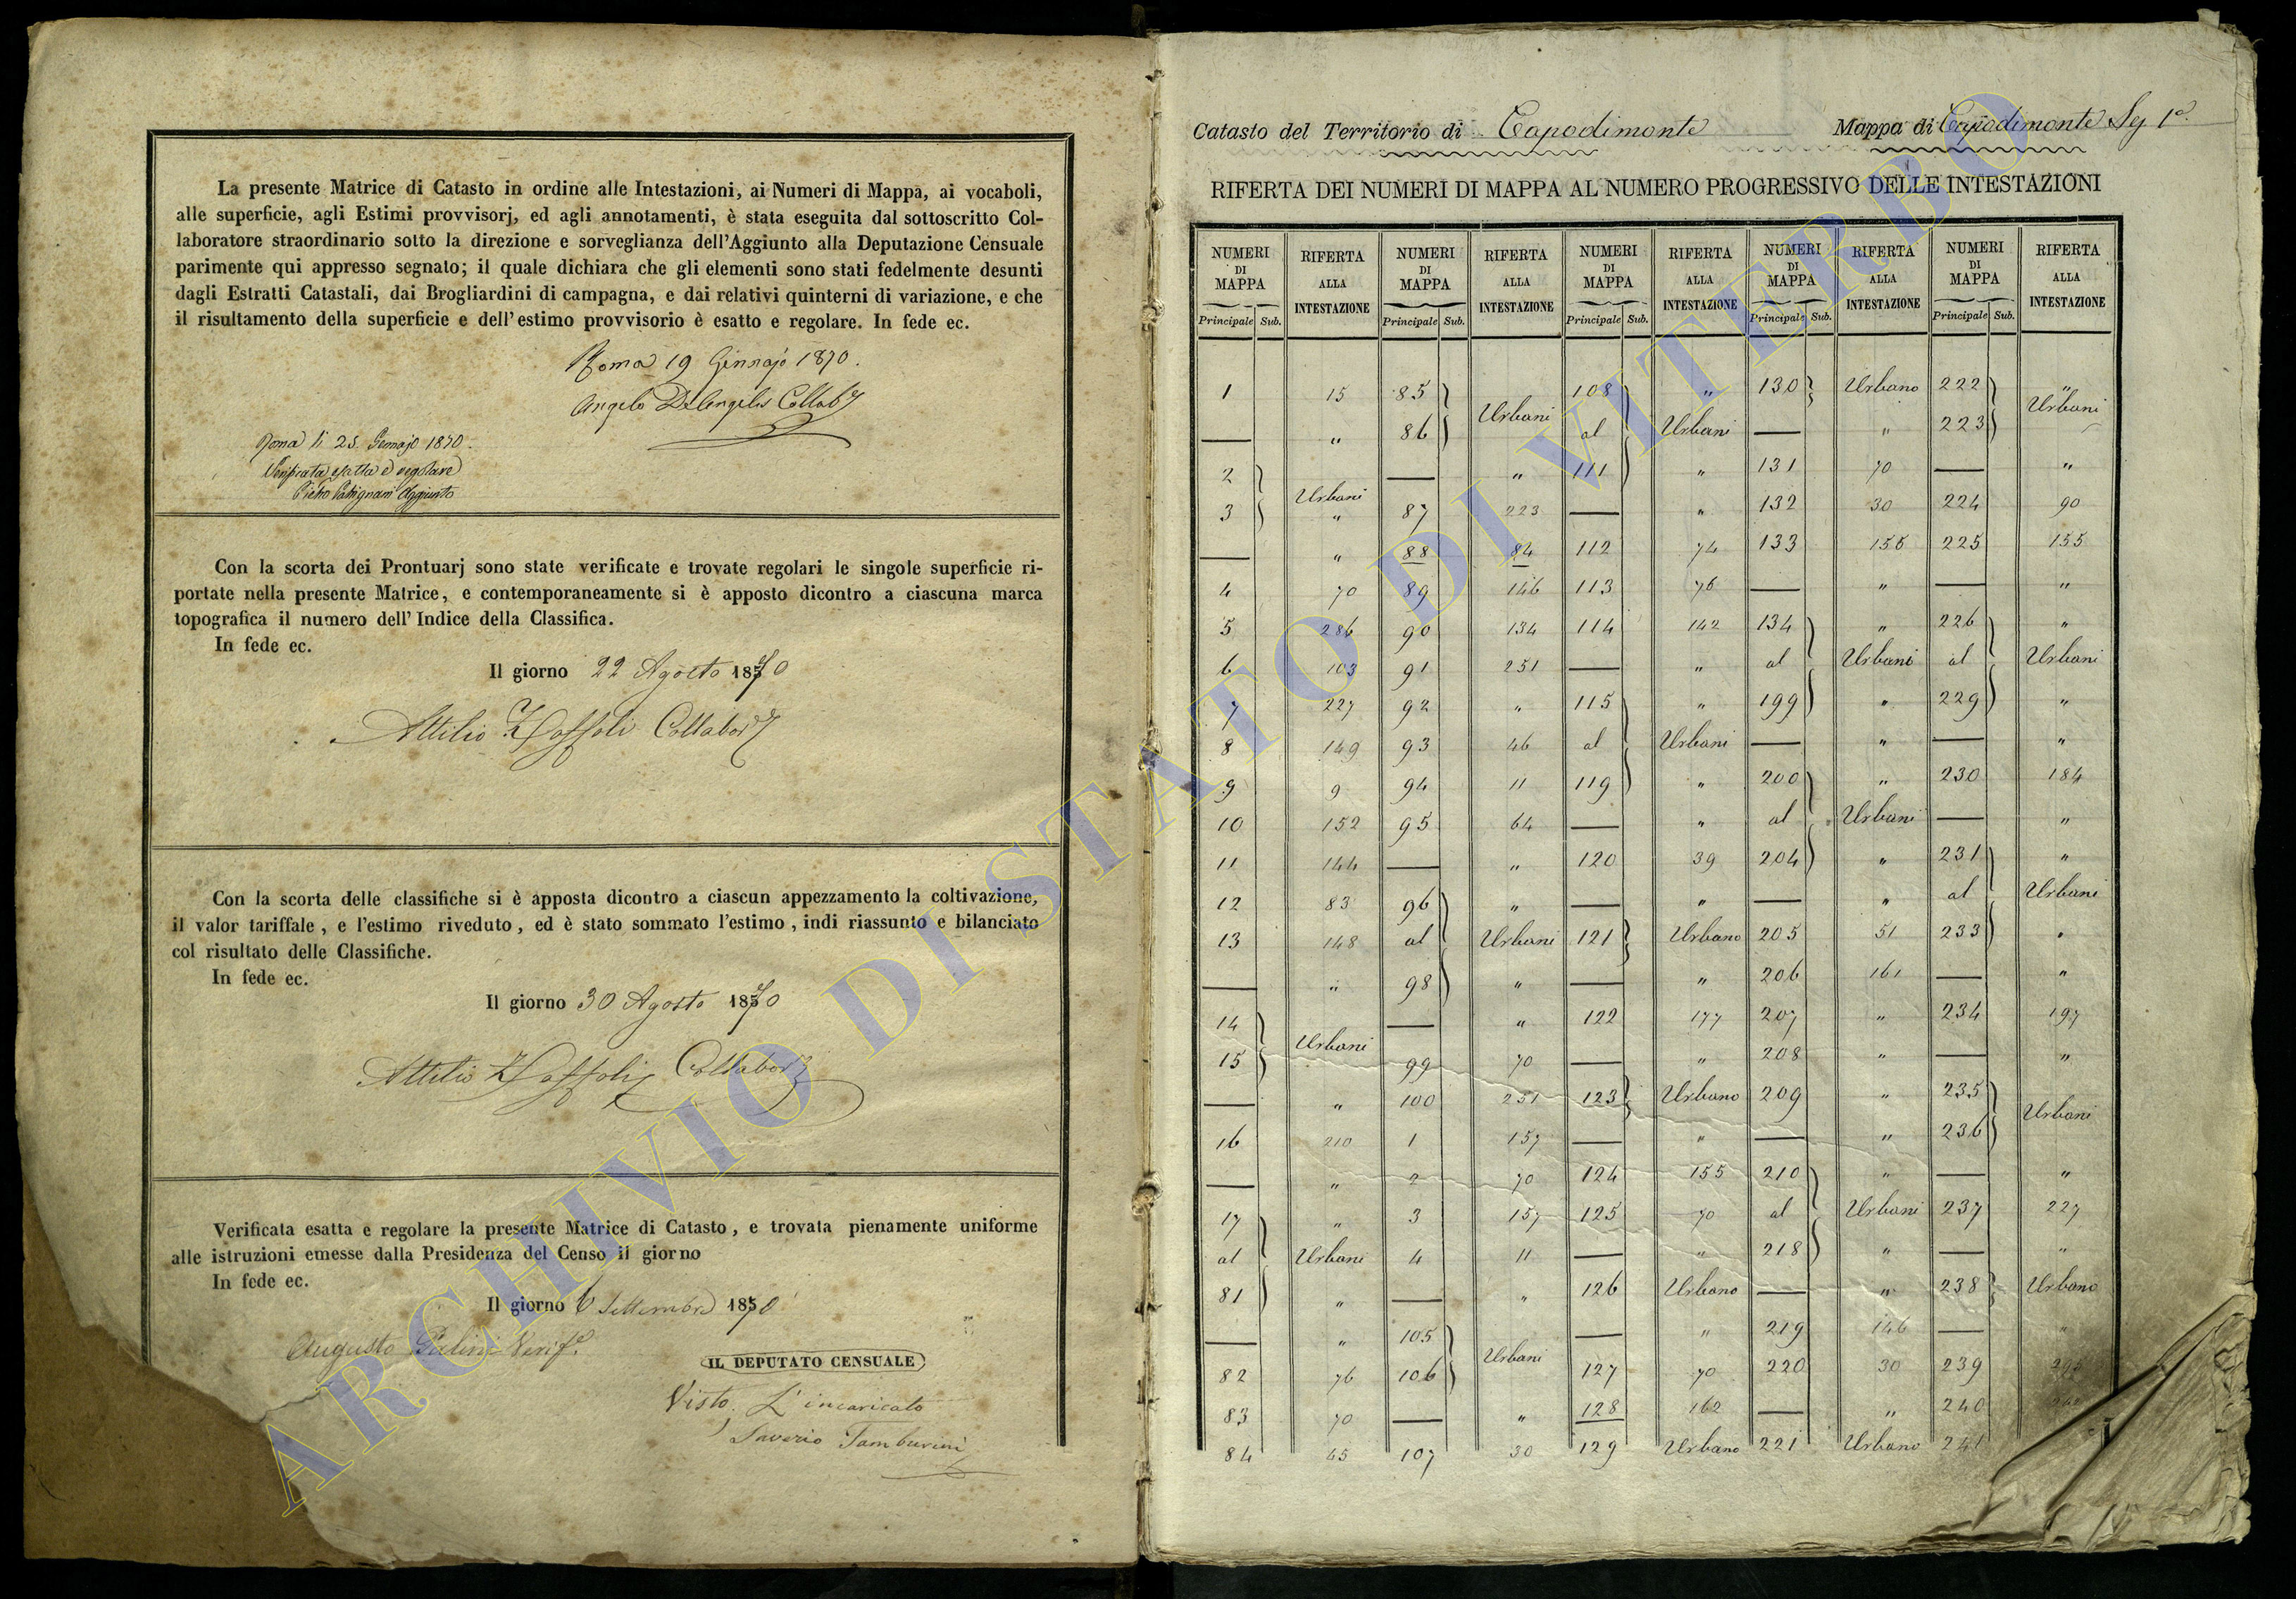 La presente Matrice di Catasto in ordine alle Intestazioni, ai Numeri di Mappa, ai vocaboli,
alle superficie, agli Estimi provvisorj, ed agli annotamenti, è stata eseguita dal sottoscritto Col-
laboratore straordinario sotto la direzione e sorveglianza dell'Aggiunto alla Deputazione Censuale
parimente qui appresso segnato; il quale dichiara che gli elementi sono stati fedelmente desunti
dagli Estratti Catastali, dai Brogliardini di campagna, e dai relativi quinterni di variazione, e che
il risultamento della superficie e dell'estimo provvisorio è esatto e regolare. In fede ec.
Roma 19 Gennajo 1870.
Angelo DeAngelis Collab
Roma li 25. Gennajo 1870.
Verificata esatta e regolare
Pietro Aggiunto
Con la scorta dei Prontuarj sono state verificate e trovate regolari le singole superficie ri-
portate nella presente Matrice, e contemporaneamente si è apposto dicontro a ciascuna marca
topografica il numero dell'Indice della Classifica.
In fede ec.
Il giorno 22 Agosto 1870
Attilio Collabor
Con la scorta delle classifiche si è apposta dicontro a ciascun appezzamento la coltivazione,
il valor tariffale, e l'estimo riveduto, ed è stato sommato l'estimo, indi riassunto e bilanciato
col risultato delle Classifiche.
In fede ec.
Il giorno 30 Agosto 1870
Attilio Collabor
Verificata esatta e regolare la presente Matrice di Catasto, e trovata pienamente uniforme
alle istruzioni emesse dalla Presidenza del Censo il giorno
In fede ec.
Il giorno 6 Settembre 1870
Augusto Verif.
IL DEPUTATO CENSUALE
Visto. L'incaricato
Saverio Tamburini
Catasto del Territorio di Capodimonte Mappa di Capodimonte Sez 1a
RIFERTA DEI NUMERI DI MAPPA AL NUMERO PROGRESSIVO DELLE INTESTAZIONI
NUMERI DI MAPPA RIFERTA ALLA INTESTAZIONE NUMERI DI MAPPA RIFERTA ALLA INTESTAZIONE NUMERI DI MAPPA RIFERTA ALLA INTESTAZIONE NUMERI DI MAPPA RIFERTA ALLA INTESTAZIONE NUMERI DI MAPPA RIFERTA ALLA INTESTAZIONE
Principale Sub. Principale Sub. Principale Sub. Principale Sub. Principale Sub.
1 15 85 Urbani 108 " 130 Urbano 222 "
— " 86 al Urbani — " 223 Urbani
2 Urbani — " 111 " 131 70 — "
3 " 87 223 — " 132 30 224 90
— " 88 84 112 74 133 155 225 155
4 70 89 146 113 76 — " — "
5 286 90 134 114 142 134 " 226 "
6 103 91 251 — " al Urbani al Urbani
7 227 92 " 115 " 199 " 229 "
8 149 93 46 al Urbani — " — "
9 9 94 11 119 " 200 " 230 184
10 152 95 64 — " al Urbani — "
11 144 — " 120 39 204 " 231 "
12 83 96 " — " — " al Urbani
13 148 al Urbani 121 Urbano 205 51 233 "
— " 98 " — " 206 161 — "
14 Urbani — " 122 177 207 " 234 197
15 99 70 — " 208 " — "
— " 100 251 123 Urbano 209 " 235 Urbani
16 210 1 157 — " — " 236
— " 2 70 124 155 210 " — "
17 " 3 157 125 70 al Urbani 237 227
al Urbani 4 11 — " 218 " — "
81 " — " 126 Urbano — " 238 Urbano
— " 105 Urbani — " 219 146 — "
82 76 106 127 70 220 30 239
83 70 — " 128 162 — " 240
84 65 107 30 129 Urbano 221 Urbano 241
ARCHIVIO DI STATO DI VITERBO